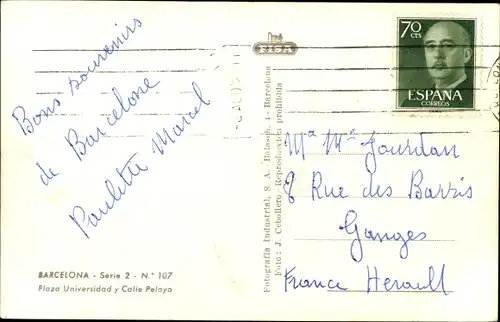 Bons souvenirs
de Barcelone
Paulette Marcel
BARCELONA - Serie 2 - N.° 107
Plaza Universidad y Calle Pelayo
FISA
Fotografía Industrial, S. A. - Barcelona
Foto: J. Cebollero - Reproducción prohibida
70
CTS
ESPAÑA
CORREOS
Mª Mᵉ Jourdan
8 Rue des Barris
Ganges
France Herault